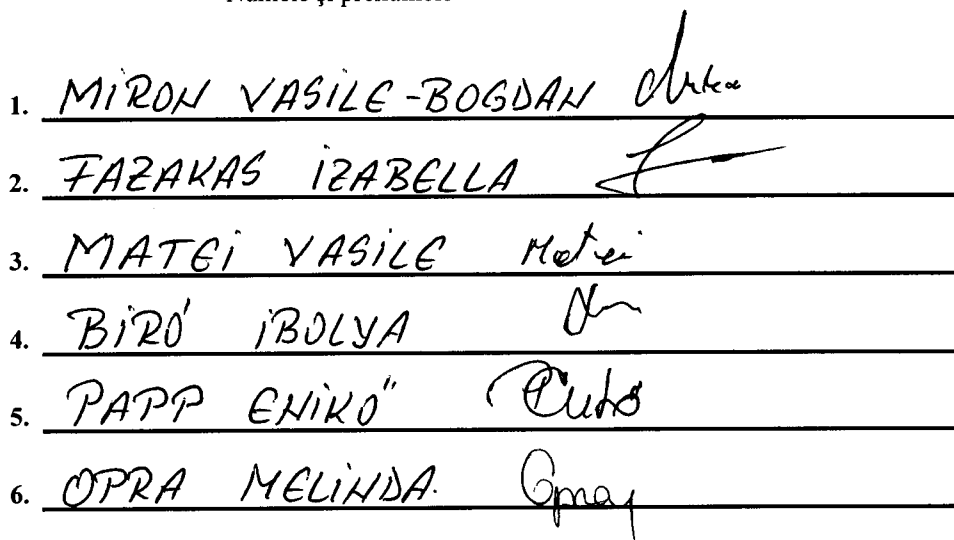 Numele şi prenumele
1. MIRON VASILE-BOGDAN
2. FAZAKAS IZABELLA
3. MATEI VASILE Matei
4. BIRÓ IBOLYA
5. PAPP ENIKŐ
6. OPRA MELINDA.